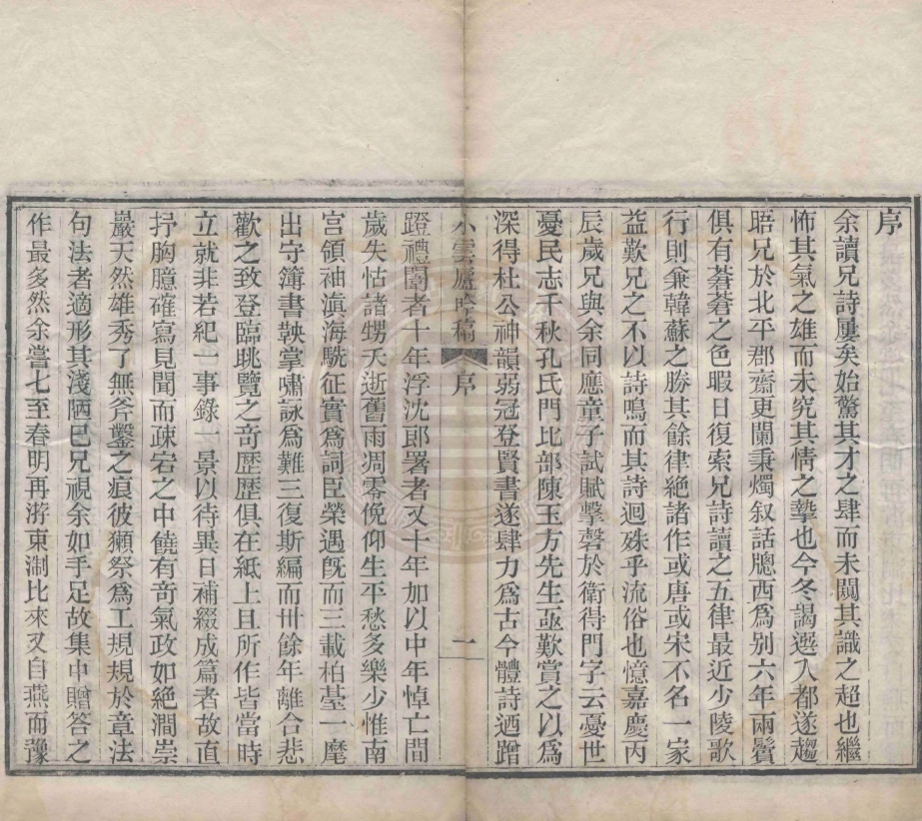 序
余讀兄詩屢矣始驚其才之肆而未闚其識之超也繼
怖其氣之雄而未究其情之摯也今冬謁選入都遂趨
晤兄於北平郡齋更闌秉燭叙話牕西爲别六年兩鬢
俱有蒼蒼之色暇日復索兄詩讀之五律最近少陵歌
行則兼韓蘇之勝其餘律絶諸作或唐或宋不名一家
益歎兄之不以詩鳴而其詩迥殊乎流俗也憶嘉慶丙
辰歲兄與余同應童子試賦擊磬於衛得門字云憂世
憂民志千秋孔氏門比部陳玉方先生亟歎賞之以爲
深得杜公神韻弱冠登賢書遂肆力爲古今體詩迺蹭
小雲廬吟稿 序 一
蹬禮闈者十年浮沈郎署者又十年加以中年悼亡間
歲失怙諸甥夭逝舊雨凋零俛仰生平愁多樂少惟南
宫領袖滇海駪征實爲詞臣榮遇旣而三載柏䑓一麾
出守簿書鞅掌嘯詠爲難三復斯編而卅餘年離合悲
歡之致登臨眺覽之竒歴歴俱在紙上且所作皆當時
立就非若紀一事錄一景以待異日補綴成篇者故直
抒胸臆確寫見聞而疎宕之中饒有竒氣政如絶澗崇
巖天然雄秀了無斧鑿之痕彼獺祭爲工規規於章法
句法者適形其淺陋巳兄視余如手足故集中贈答之
作最多然余嘗七至春明再游東淛比來又自燕而豫